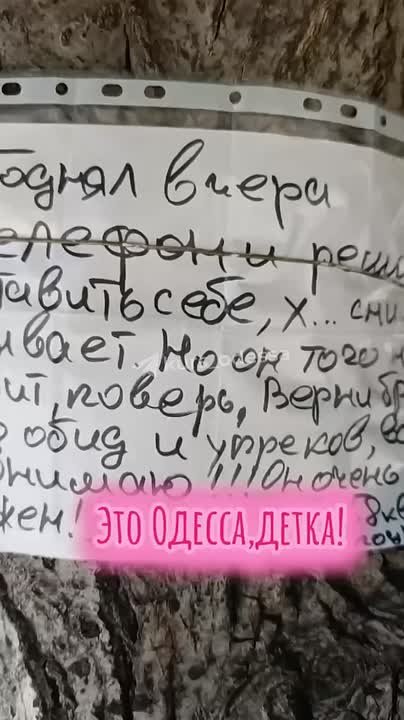 однял вчера
елефон и реши
тавить себе, х... сни
ывает. Но он того н
ит, поверь, верни бр
обид и упреков, вс
онимаю!!! Он очень
жен!
Это Одесса,детка!